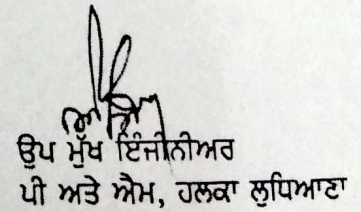 ਉਪ ਮੁੱਖ ਇੰਜੀਨੀਅਰ
ਪੀ ਅਤੇ ਐਮ, ਹਲਕਾ ਲੁਧਿਆਣਾ